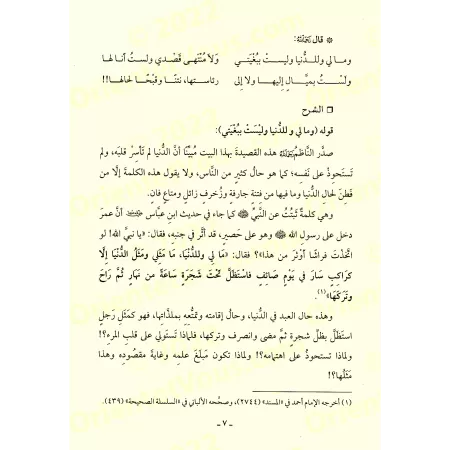 * قال رَحِمَهُ اللَّهُ:
وما لي وللـدُّنيا وليـستْ ببُغْيَتي ولَا مُنْتَهى قَصْدي ولستُ أنا لها
ولسْـتُ بميـَّالٍ إليـها ولا إلى رئاستِـها، نتنًـا وقبْحًـا لحالها!!
❏ الشرح
قوله (وما لي وللدُّنيا وليْسَتْ ببُغْيَتي):
صدَّر النَّاظمُ رَحِمَهُ اللَّهُ هذه القصيدةَ بهذا البيت مُبيِّنًا أنَّ الدُّنيا لم تَأسِرْ قلبَه، ولم
تَستَحوذْ على نَفسِه؛ كما هو حالُ كثيرٍ من النَّاس، ولا يقول هذه الكلمةَ إلَّا من
فَطِنَ لحالِ الدُّنيا وما فيها من فِتنةٍ جارفةٍ وزُخرفٍ زائلٍ ومتاعٍ فانٍ.
وهي كلمةٌ ثَبتَتْ عن النَّبيِّ ﷺ كما جاء في حديث ابنِ عبَّاس رضي الله عنهما أنَّ عمرَ
دخل على رسولِ الله ﷺ وهو على حَصيرٍ، قد أثَّر في جنبِه، فقال: «يا نبيَّ الله! لو
اتَّخذْتَ فراشًا أَوْثَرَ من هذا»؟ فقال: «مَا لِي وللدُّنْيَا، مَا مَثَلِي ومَثَلُ الدُّنْيَا إلَّا
كَرَاكِبٍ سَارَ في يَوْمٍ صَائِفٍ فاسْتَظَلَّ تَحْتَ شَجَرَةٍ سَاعَةً من نهارٍ ثُمَّ رَاحَ
وتَرَكَهَا»(١).
وهذه حال العبد في الدُّنيا، وحالُ إقامته وتمتُّعه بملذَّاتِها، فهو كمَثَلِ رَجلٍ
استَظَلَّ بظلِّ شجرةٍ ثمَّ مضى وانصرف وتركها، فلماذا تَستَولي على قلبِ المرءِ؟!
ولماذا تستحوذُ على اهتمامِه؟! ولماذا تكون مَبلَغَ علمِه وغايةَ مقصُودِه وهذا
مَثَلُها؟!
(١) أخرجه الإمام أحمد في «المسند» (٢٧٤٤)، وصحَّحه الألباني في «السلسلة الصحيحة» (٤٣٩).
- ٧ -